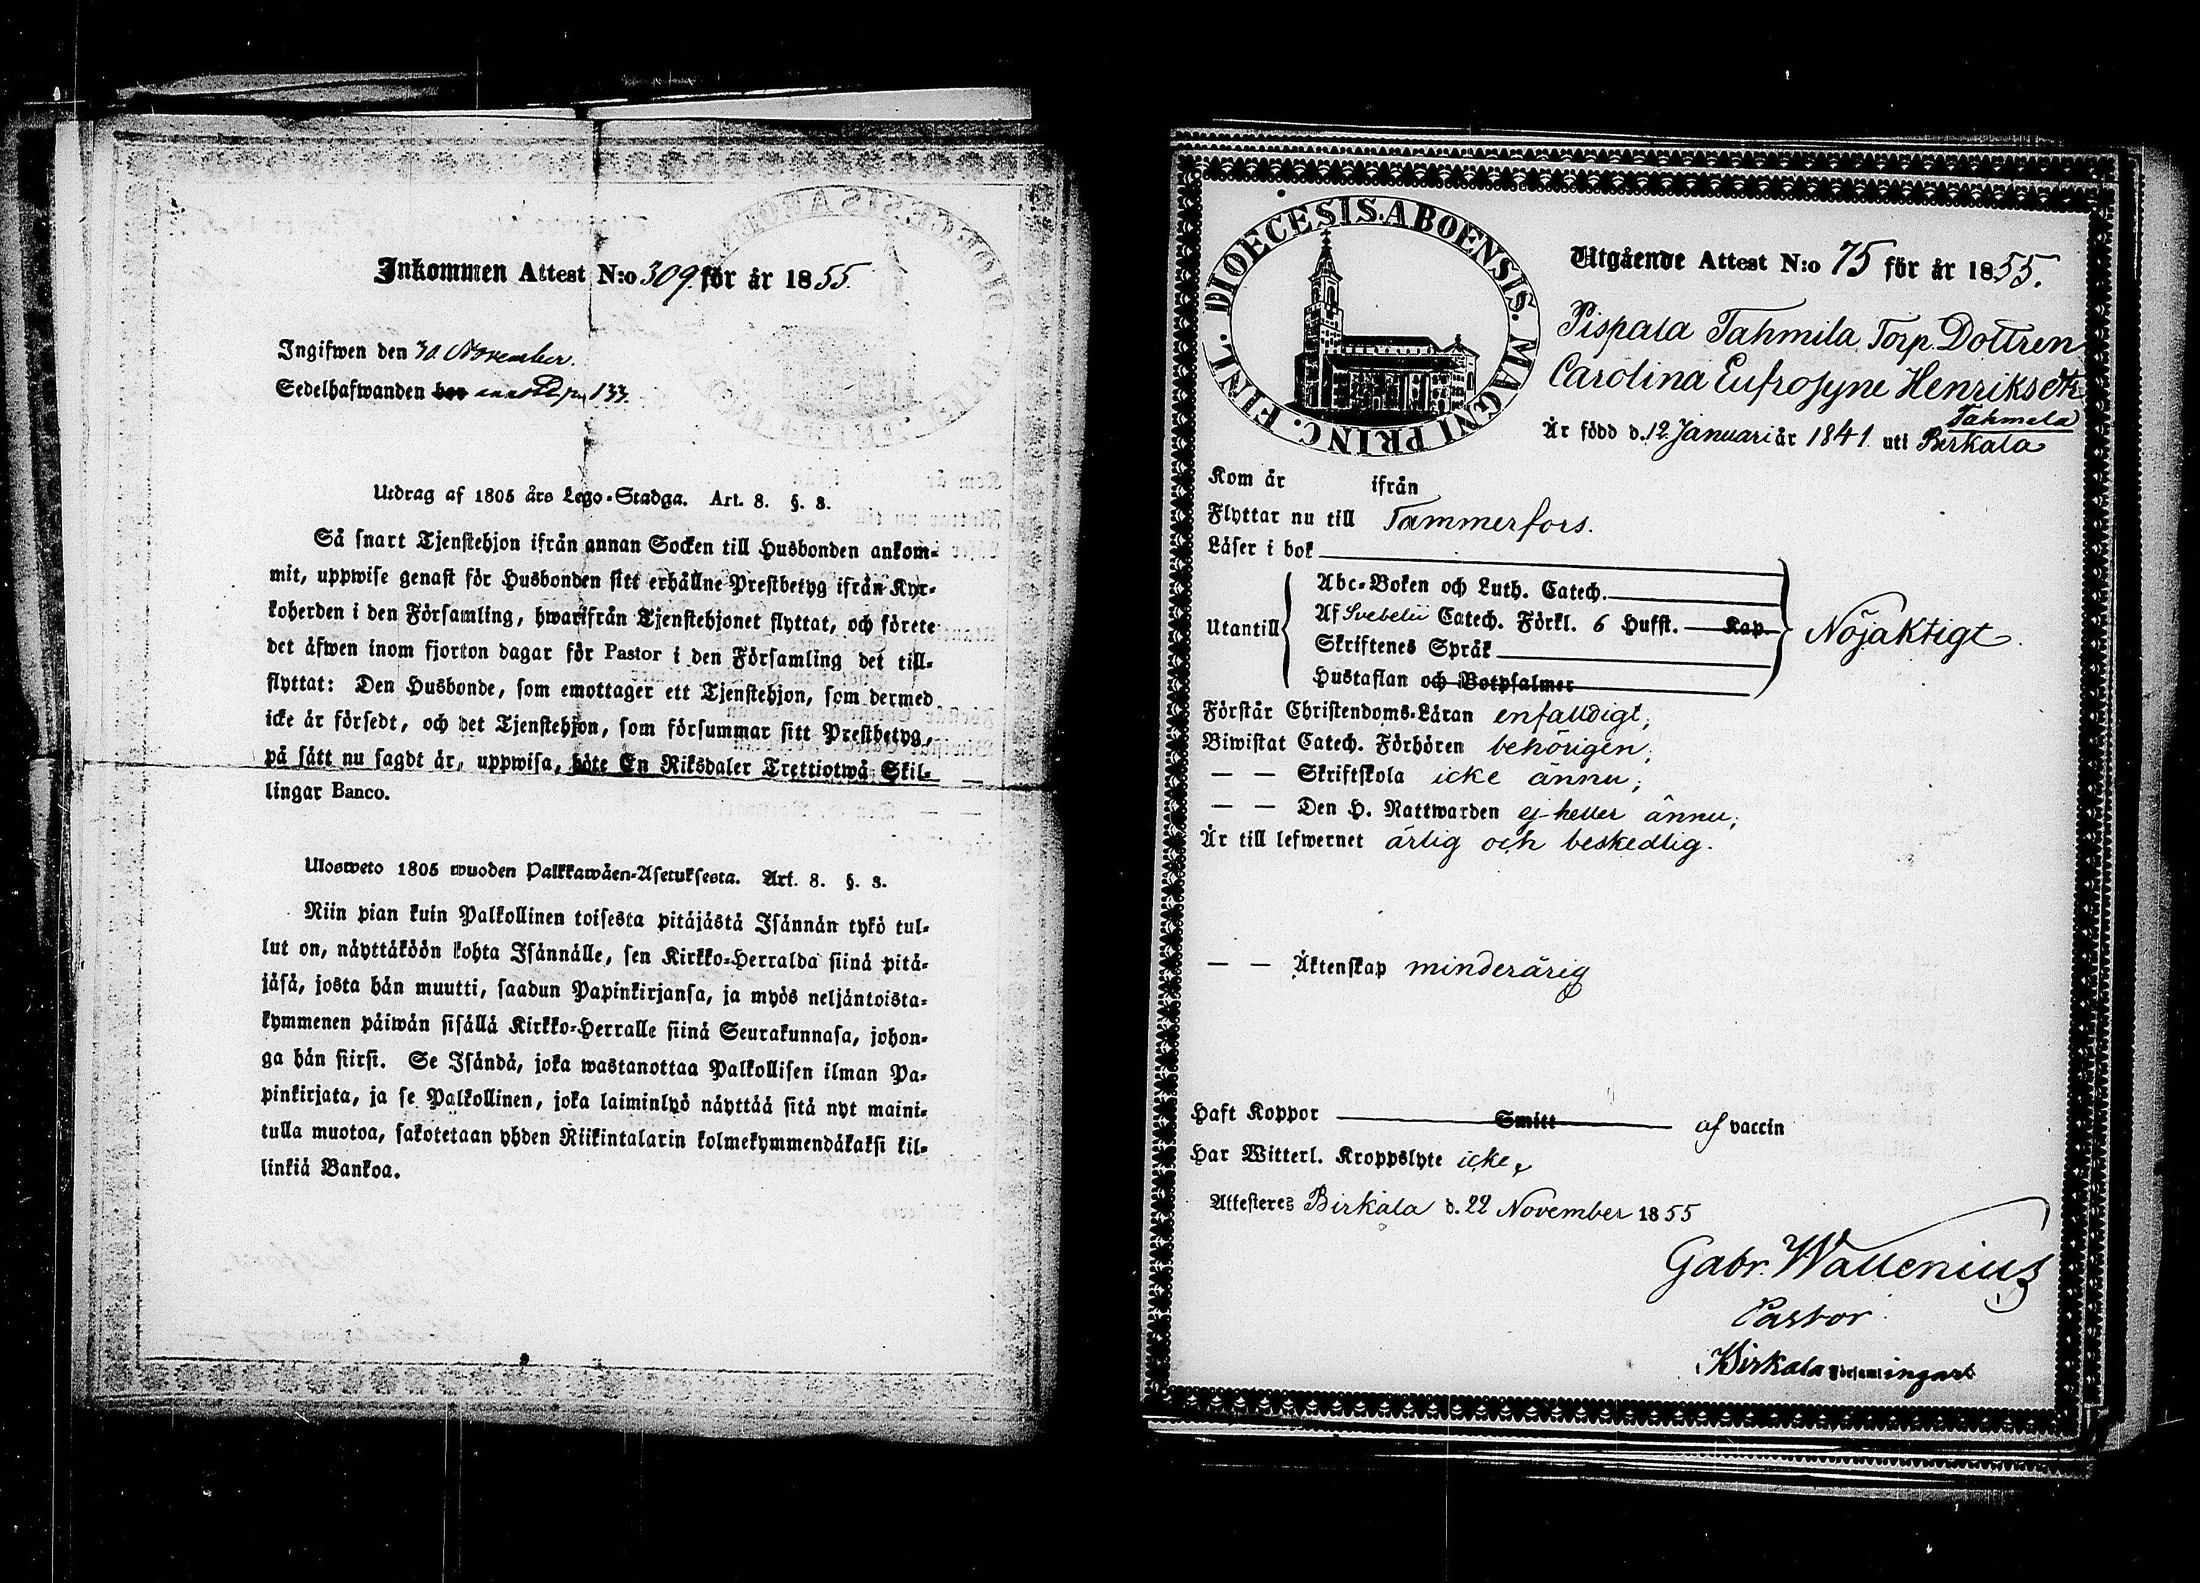 Inkommen Attest N:o 309 för år 1855.
Ingifwen den 30 November.
Sedelhafwanden
Utdrag af 1805 års Lego-Stadga. Art. 8. §. 3.
Så snart Tjenstehjon ifrån annan Socken till Husbonden ankom-
mit, uppwise genast för Husbonden sitt erhållne Prestbetyg ifrån Kyr-
koherden i den Församling, hwarifrån Tjenstehjonet flyttat, och förete
det äfwen inom fjorton dagar för Pastor i den Församling det till-
flyttat: Den Husbonde, som emottager ett Tjenstehjon, som dermed
icke är försedt, och det Tjenstehjon, som försummar sitt Prestbetyg,
på sätt nu sagdt är, uppwisa, böte En Riksdaler Trettiotwå Skil-
lingar Banco.
Ulosweto 1805 wuoden Palkkawäen-Asetuksesta. Art. 8. §. 3.
Niin pian kuin Palkollinen toisesta pitäjästä Isännän tykö tul-
lut on, näyttäköön kohta Isännälle, sen Kirkko-Herralda siinä pitä-
jäsä, josta hän muutti, saadun Papinkirjansa, ja myös neljäntoista-
kymmenen päiwän sisällä Kirkko-Herralle siinä Seurakunnasa, johon-
ga hän siirsi. Se Isändä, joka wastanottaa Palkollisen ilman Pa-
pinkirjata, ja se Palkollinen, joka laiminlyö näyttää sitä nyt maini-
tulla muotoa, sakotetaan yhden Riikintalarin kolmekymmendäkaksi kil-
linkiä Bankoa.
DIOECESIS. ABOENSIS. MAGNI PRINC. FINL.
Utgående Attest N:o 75 för år 1855.
Pispala Tahmila Torp Dottren
Carolina Eufrosyne Henriksdtr
Tahmela
Är född d. 12 Januari år 1841. uti Birkala
Kom år ifrån
Flyttar nu till Tammerfors.
Läser i bok
Abc-Boken och Luth. Catech.
Utantill Af Svebelii Catech. Förkl. 6 Hufst. Kap Nöjaktigt.
Skriftenes Språk
Hustaflan och Botpsalmer
Förstår Christendoms-Läran enfalldigt;
Biwistat Catech. Förhören behörigen;
— — Skriftskola icke ännu;
— — Den H. Nattwarden ej heller ännu;
Är till lefwernet ärlig och beskedlig.
— — Äktenskap minderårig
Haft Koppor Smitt af vaccin
Har Witterl. Kroppslyte icke,
Attesteres Birkala d. 22 November 1855
Gabr. Wallenius
Pastor
Birkala Församlingart